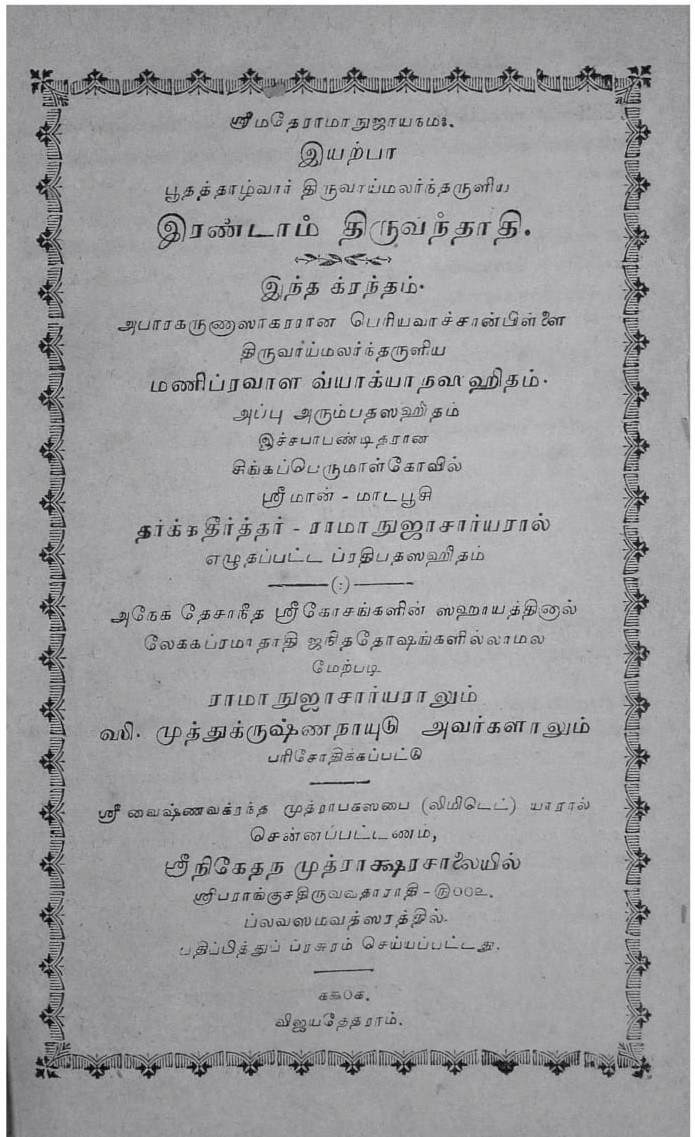 ஸ்ரீமதேராமாநுஜாயநமஃ.
இயற்பா
பூதத்தாழ்வார் திருவாய்மலர்ந்தருளிய
இரண்டாம் திருவந்தாதி.
இந்த க்ரந்தம்.
அபாரகருணாஸாகரரான பெரியவாச்சான்பிள்ளை
திருவாய்மலர்ந்தருளிய
மணிப்ரவாள வ்யாக்யாநஸஹிதம்.
அப்பு அரும்பதஸஹிதம்
இச்சபாபண்டிதரான
சிங்கப்பெருமாள்கோவில்
ஸ்ரீமான் - மாடபூசி
தர்க்கதீர்த்தர் - ராமாநுஜாசார்யரால்
எழுதப்பட்ட ப்ரதிபதஸஹிதம்
(:)
அநேக தேசாநீத ஸ்ரீகோசங்களின் ஸஹாயத்தினால்
லேககப்ரமாதாதி ஜநிததோஷங்களில்லாமல
மேற்படி
ராமாநுஜாசார்யராலும்
முத்துக்ருஷ்ணநாயுடு அவர்களாலும்
பரிசோதிக்கப்பட்டு
ஸ்ரீ வைஷ்ணவக்ரந்த முத்ராபகஸபை (லிமிடெட்) யாரால்
சென்னப்பட்டணம்,
ஸ்ரீநிகேதந முத்ராக்ஷரசாலையில்
ஸ்ரீபராங்குசதிருவவதாராதி -
ப்லவஸமவத்ஸரத்தில்.
பதிப்பித்துப் ப்ரசுரம் செய்யப்பட்டது.
௧௯௦௧.
விஜயதேதராம்.